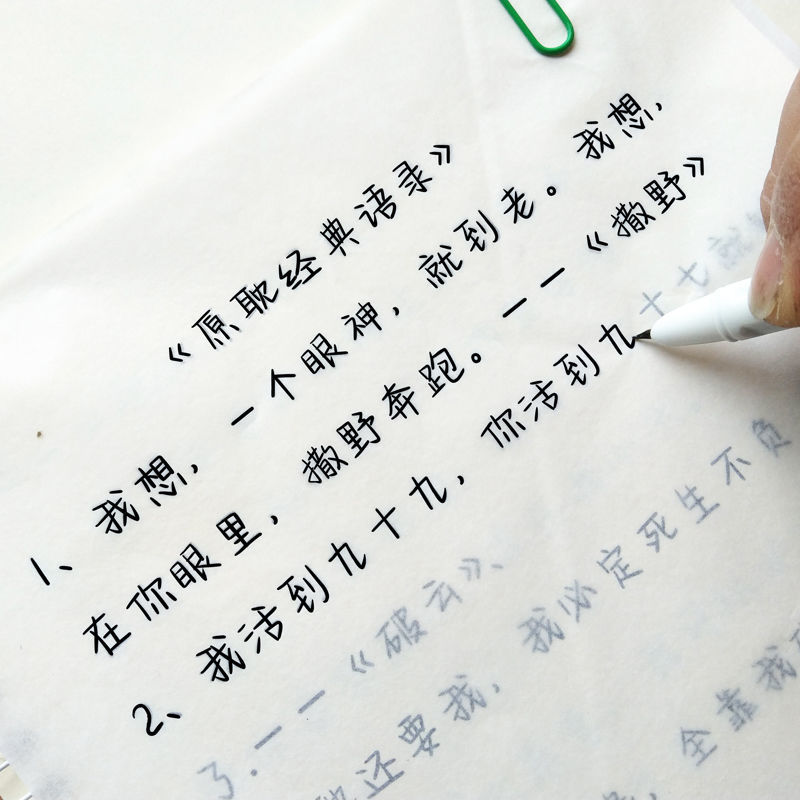 《原耽经典语录》
1、我想,一个眼神,就到老。我想,
在你眼里,撒野奔跑。一一《撒野》
2、我活到九十九,你活到九十七就
3.一一《破云》、
还要我,我必定死生不负
全靠我